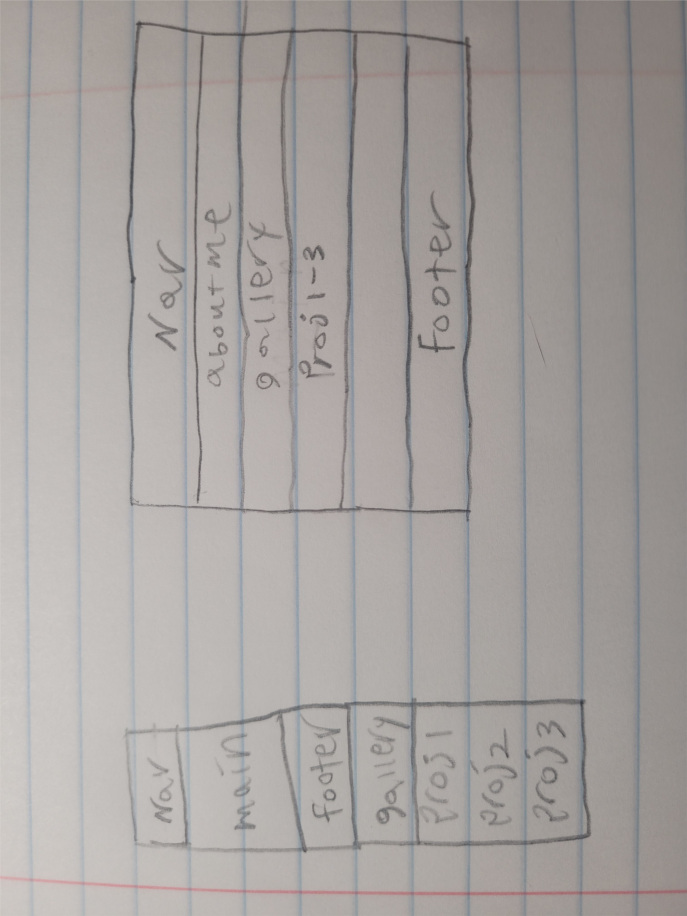 Nav
main
footer
gallery
Proj1
Proj2
Proj3
Nav
about me
gallery
Proj 1-3
Footer